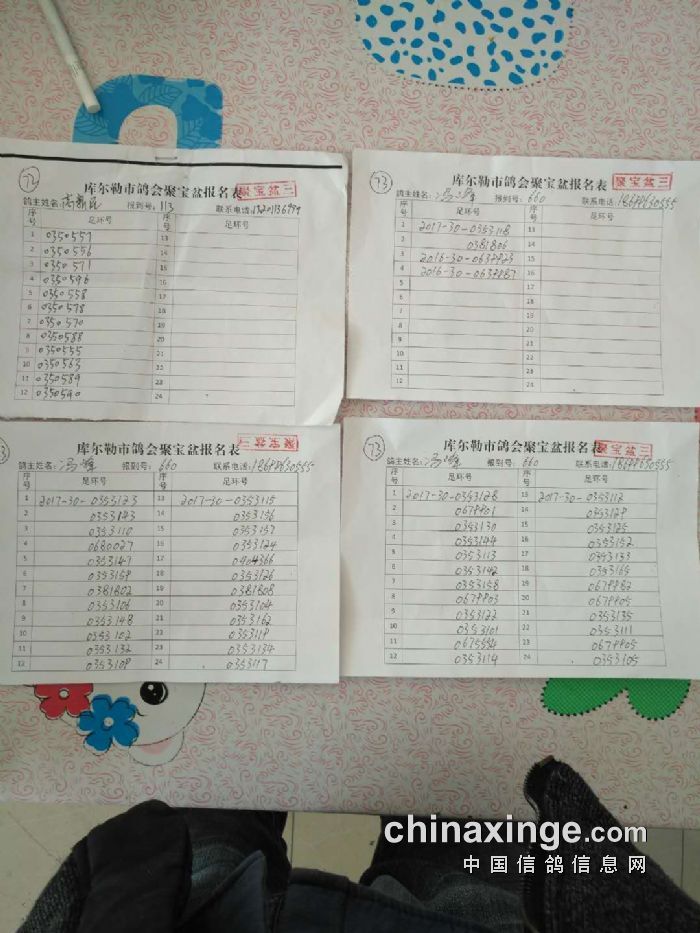 72
库尔勒市鸽会聚宝盆报名表
聚宝盆三
鸽主姓名: 报到号: 113 联系电话:
序号 足环号 序号 足环号
1 0350557 13
2 0350556 14
3 0350571 15
4 0350596 16
5 0350558 17
6 0350578 18
7 0350570 19
8 0350588 20
9 0350555 21
10 0350563 22
11 0350589 23
12 0350590 24
73
库尔勒市鸽会聚宝盆报名表
聚宝盆三
鸽主姓名: 冯峰 报到号: 660 联系电话:
序号 足环号 序号 足环号
1 2017-30-0353118 13
2 0381806 14
3 2016-30- 15
4 2016-30- 16
5 17
6 18
7 19
8 20
9 21
10 22
11 23
12 24
库尔勒市鸽会聚宝盆报名表
鸽主姓名: 冯峰 报到号: 660 联系电话:
序号 足环号 序号 足环号
1 2017-30-0353123 13 2017-30-0353115
2 0353143 14 0353156
3 0353110 15 0353157
4 0680027 16 0353124
5 0353147 17 0904366
6 0353159 18 0353126
7 0381802 19 0381808
8 0353106 20 0353104
9 0353148 21 0353162
10 0353102 22 0353119
11 0353132 23 0353134
12 0353108 24 0353117
73
库尔勒市鸽会聚宝盆报名表
聚宝盆三
鸽主姓名: 冯峰 报到号: 660 联系电话:
序号 足环号 序号 足环号
1 2017-30-0353128 13 2017-30-0353112
2 14 0353129
3 0353130 15 0353125
4 0353144 16 0353152
5 0353113 17 0353133
6 0353142 18 0353165
7 0353158 19
8 20
9 0353122 21 0353135
10 0353101 22 0353111
11 23
12 0353114 24 0353105
chinaxinge.com
中国信鸽信息网